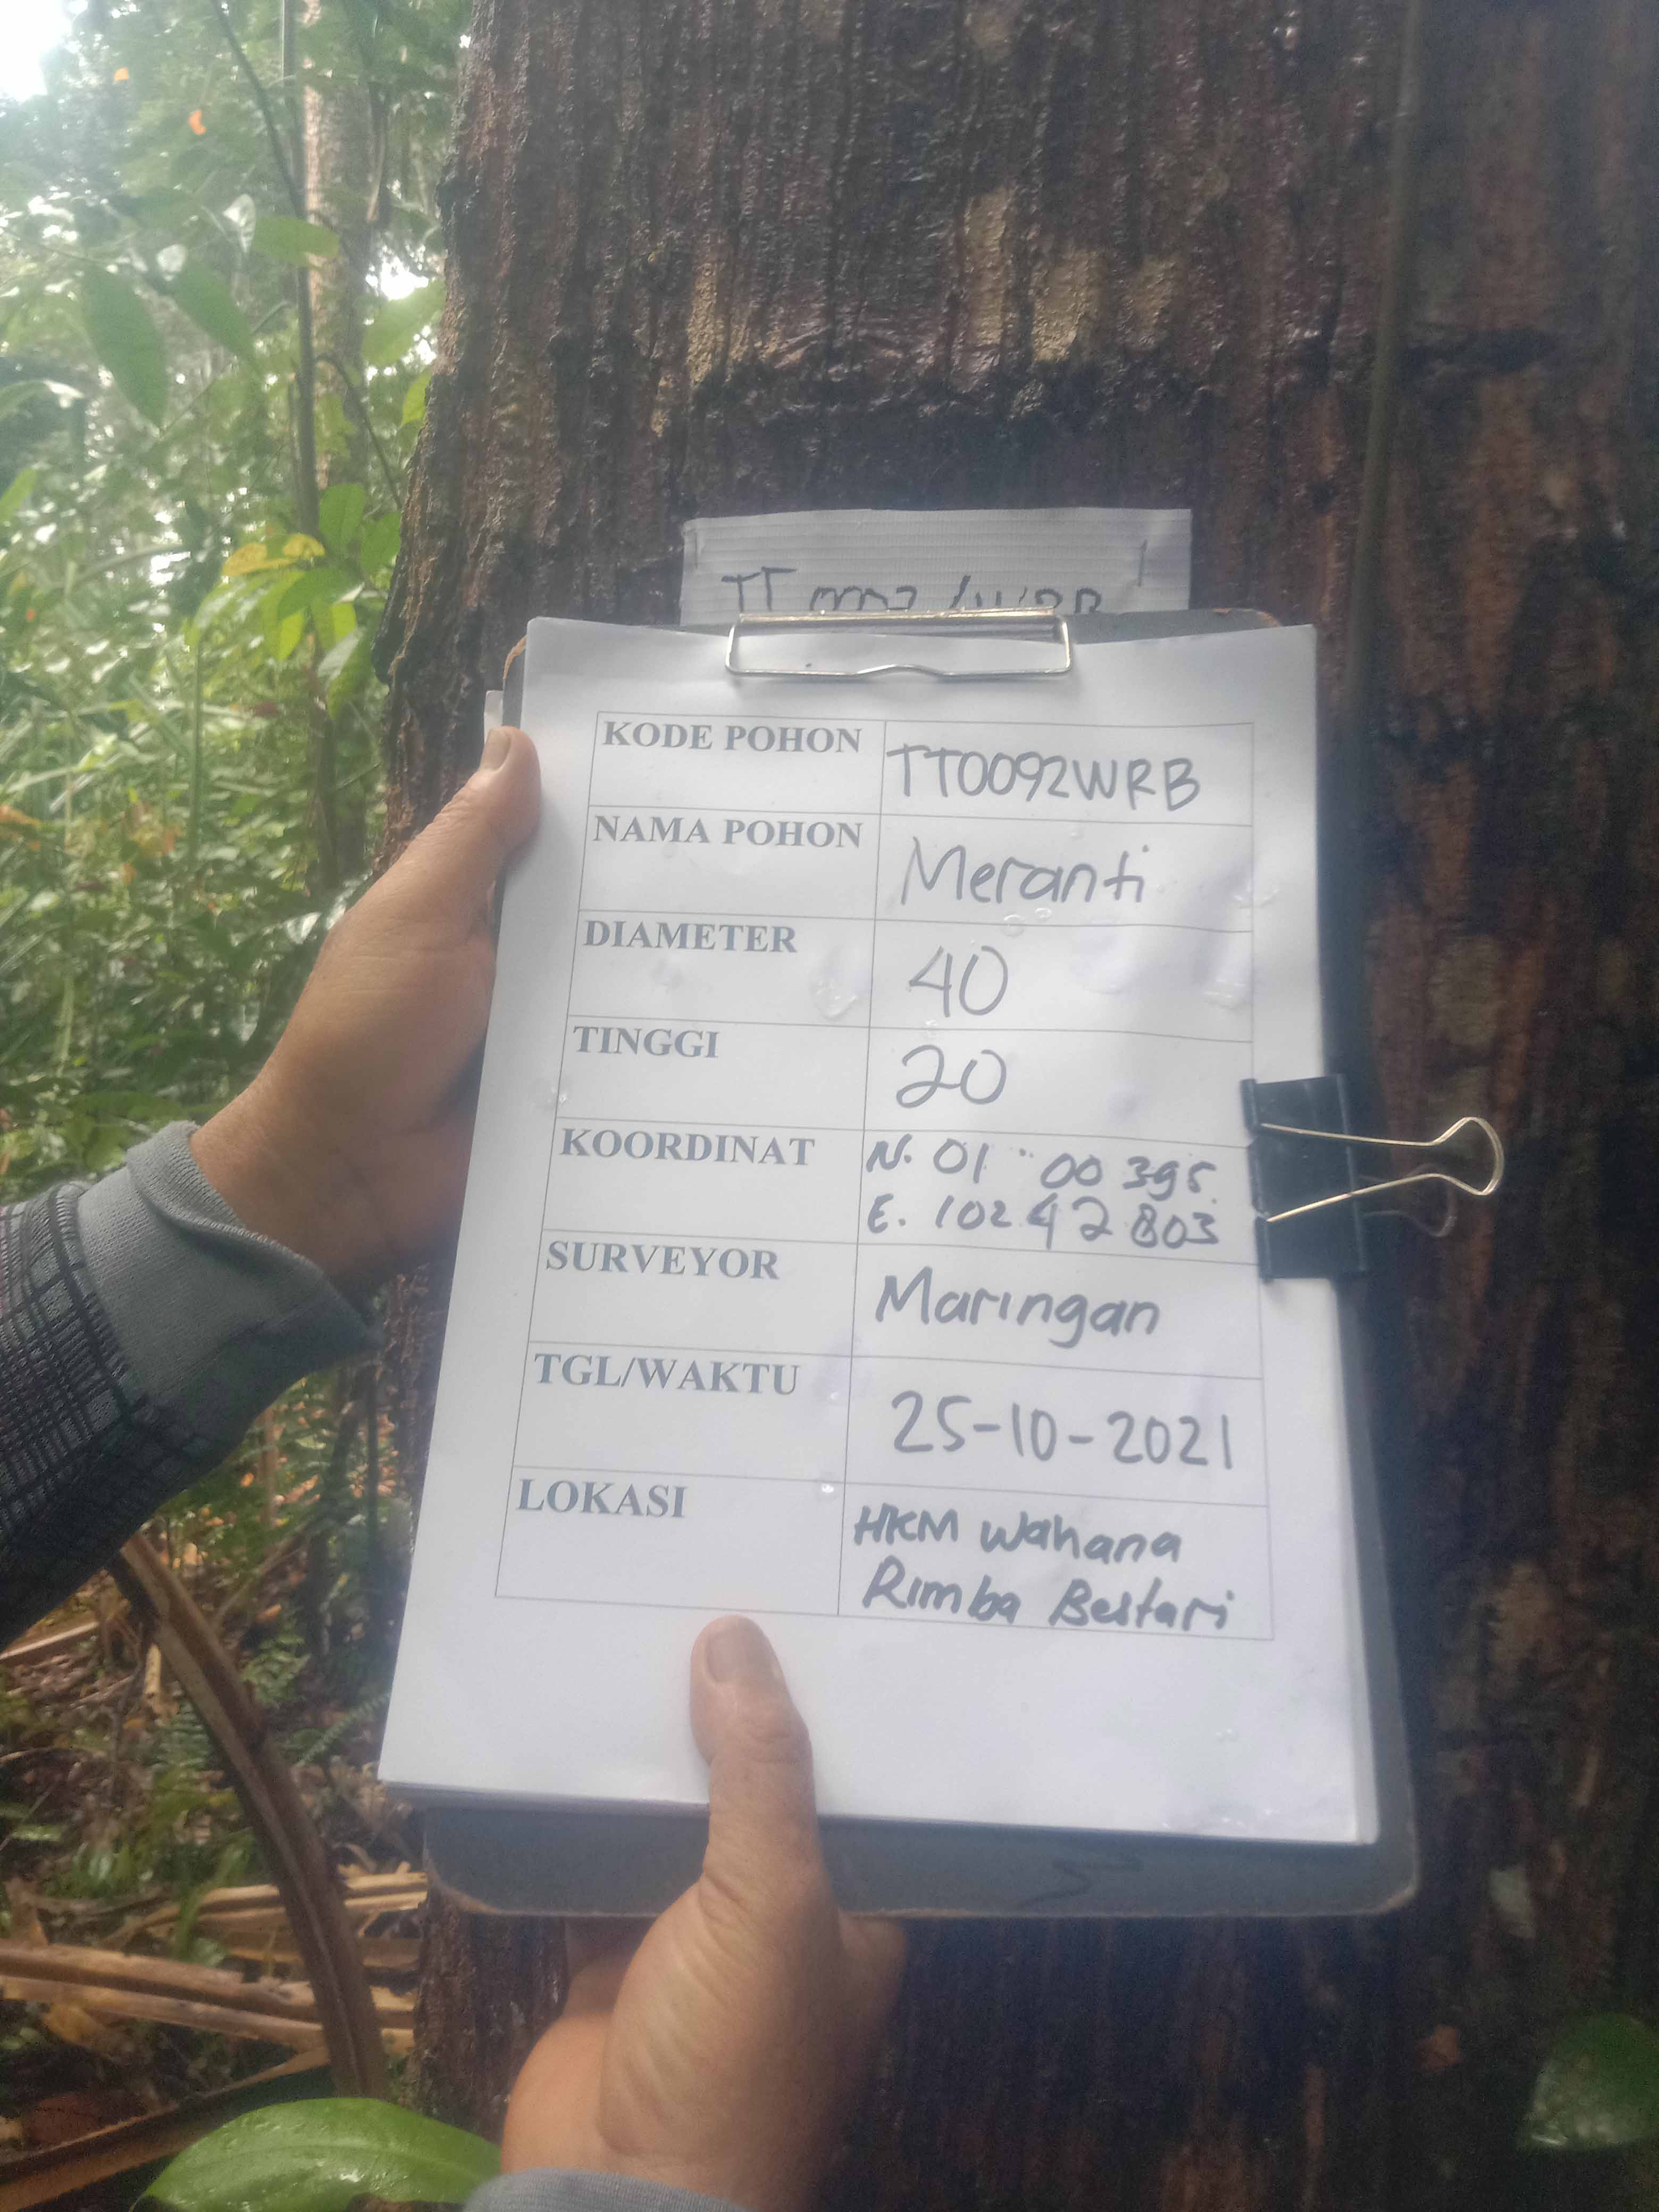 KODE POHON TT0092WRB
NAMA POHON Meranti
DIAMETER 40
TINGGI 20
KOORDINAT N. 01 00 395.
E. 102 42 803
SURVEYOR Maringan
TGL/WAKTU 25-10-2021
LOKASI HKM Wahana
Rimba Bestari